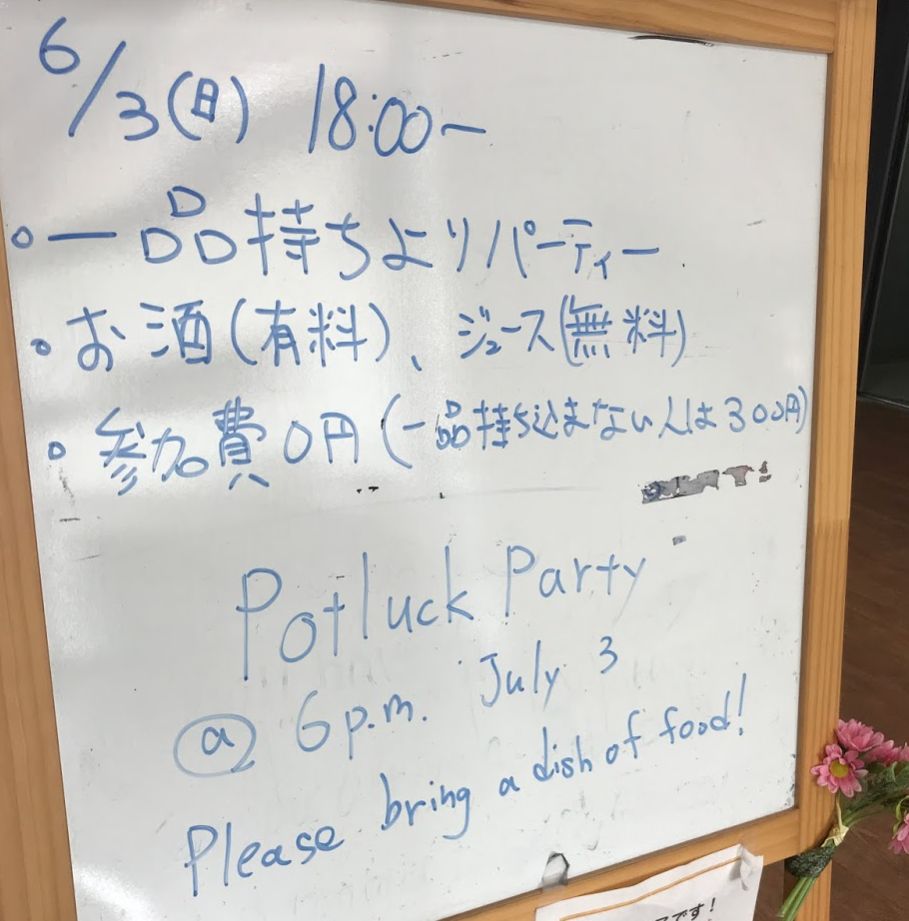 6/3(日) 18:00〜
。一品持ちよりパーティー
。お酒(有料)、ジュース(無料)
。参加費0円(一品持ち込まない人は300円)
Potluck Party
@ 6p.m. July 3
Please bring a dish of food!
です!